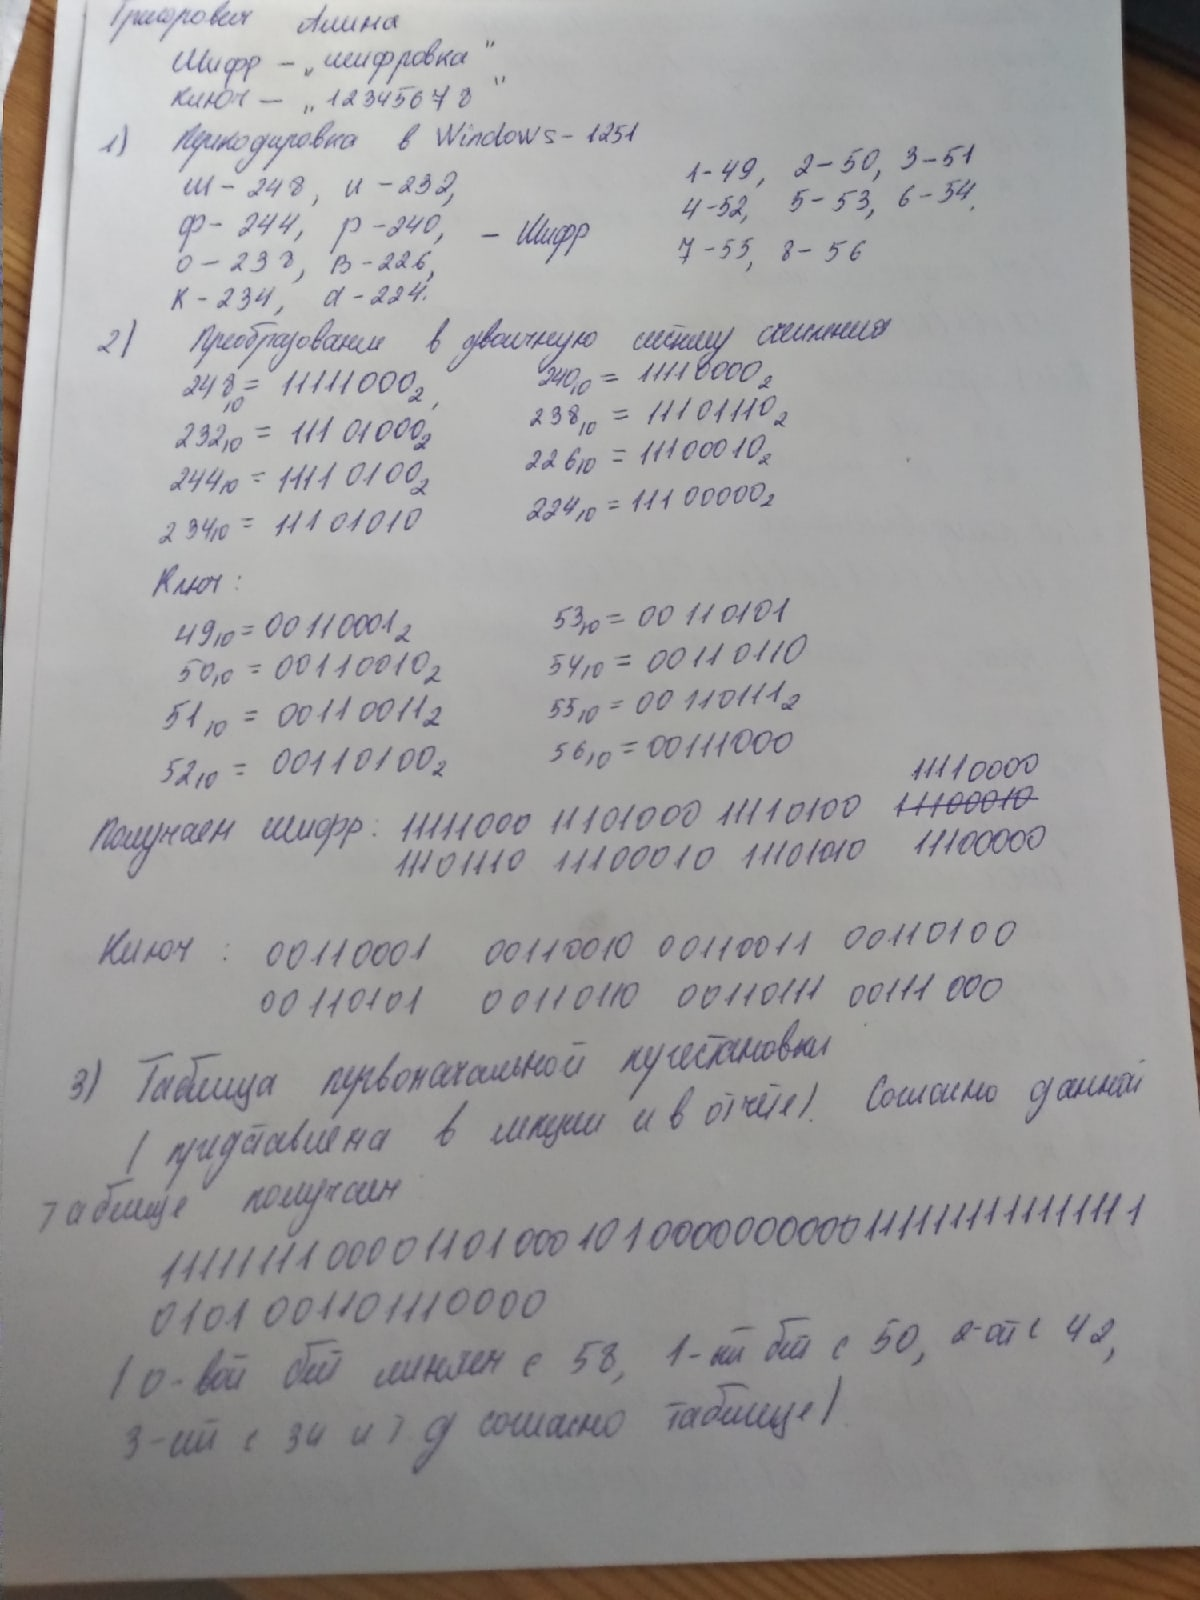 Григорович Алина
Шифр – „шифровка"
Ключ – „12345678"
1) Перекодировка в Windows-1251
ш – 248, и – 232, 1-49, 2-50, 3-51
ф – 244, р – 240, – Шифр 4-52, 5-53, 6-54,
о – 238, в – 226, 7-55, 8-56
к – 234, а – 224.
2) Преобразование в двоичную систему счисления
248₁₀ = 11111000₂, 240₁₀ = 11110000₂
232₁₀ = 11101000₂ 238₁₀ = 11101110₂
244₁₀ = 11110100₂ 226₁₀ = 11100010₂
234₁₀ = 11101010 224₁₀ = 11100000₂
Ключ:
49₁₀ = 00110001₂ 53₁₀ = 00110101
50₁₀ = 00110010₂ 54₁₀ = 00110110
51₁₀ = 00110011₂ 55₁₀ = 00110111₂
52₁₀ = 00110100₂ 56₁₀ = 00111000
11110000
Получаем шифр: 11111000 11101000 11110100 11100010
11101110 11100010 11101010 11100000
Ключ: 00110001 00110010 00110011 00110100
00110101 00110110 00110111 00111000
3) Таблица первоначальной перестановки
(представлена в лекции и в отчёте). Согласно данной
таблице получаем:
0101001101110000
(0-вой бит меняем с 58, 1-ый бит с 50, 2-ой с 42,
3-ий с 34 и т.д согласно таблице)